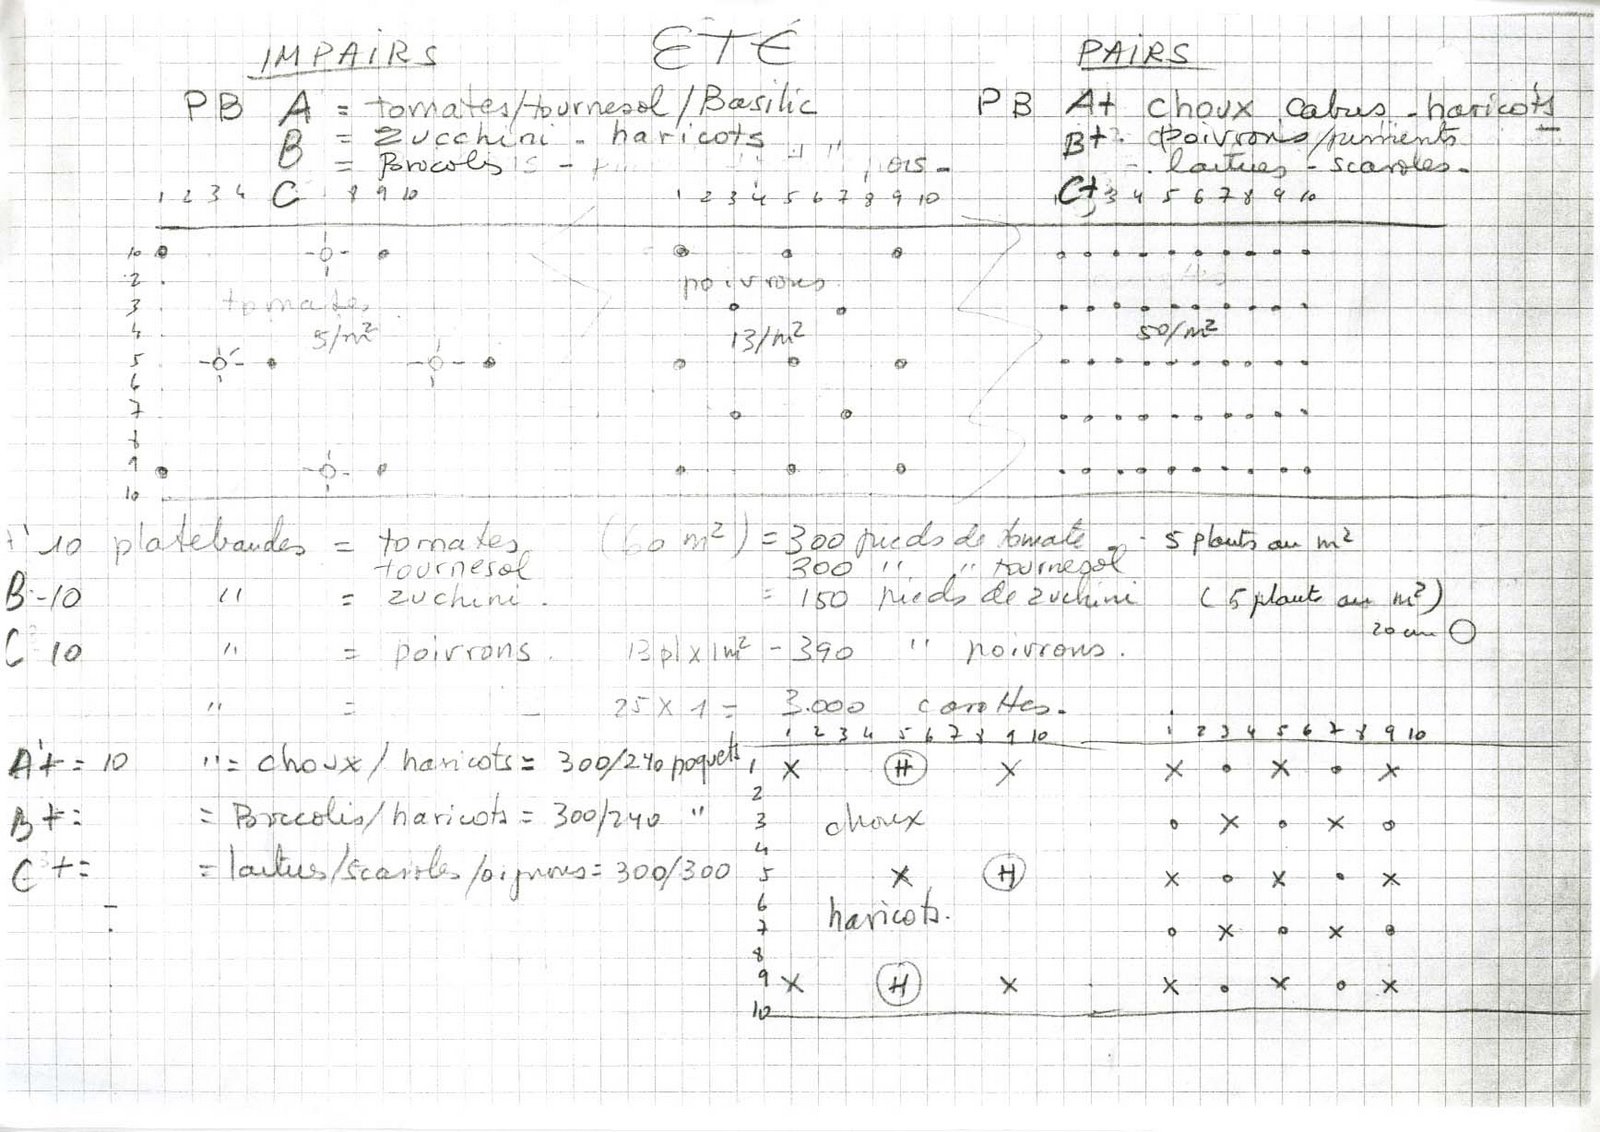 IMPAIRS ETÉ PAIRS
PB A = tomates/tournesol/Basilic PB A+ choux cabus - haricots
B = Zucchini - haricots B+ poivrons/piments
= Brocolis - laitues - scaroles -
1 2 3 4 C 8 9 10 1 2 3 4 5 6 7 8 9 10 C+ 3 4 5 6 7 8 9 10
10
2 poivrons
3 tomates
4 5/m² 13/m² 50/m²
5
6
7
8
9
10
10 platebandes = tomates (60 m²) = 300 pieds de tomate - 5 plants au m²
tournesol 300 " " tournesol
B-10 " = zuchini. = 150 pieds de zuchini (5 plants au m²)
20 cm
C 10 " = poivrons. 13pl x 1m² - 390 " poivrons.
" = - 25 x 1 = 3.000 carottes.
1 2 3 4 5 6 7 8 9 10 1 2 3 4 5 6 7 8 9 10
A+ = 10 " = choux/haricots = 300/240 poquets 1 X H X X X X
2
B+ = = Broccolis/haricots = 300/240 " 3 choux X X
4
C+ = = laitus/scaroles/oignons = 300/300 5 X H X X X
6 haricots.
7 X X
8
9 X H X X X X
10